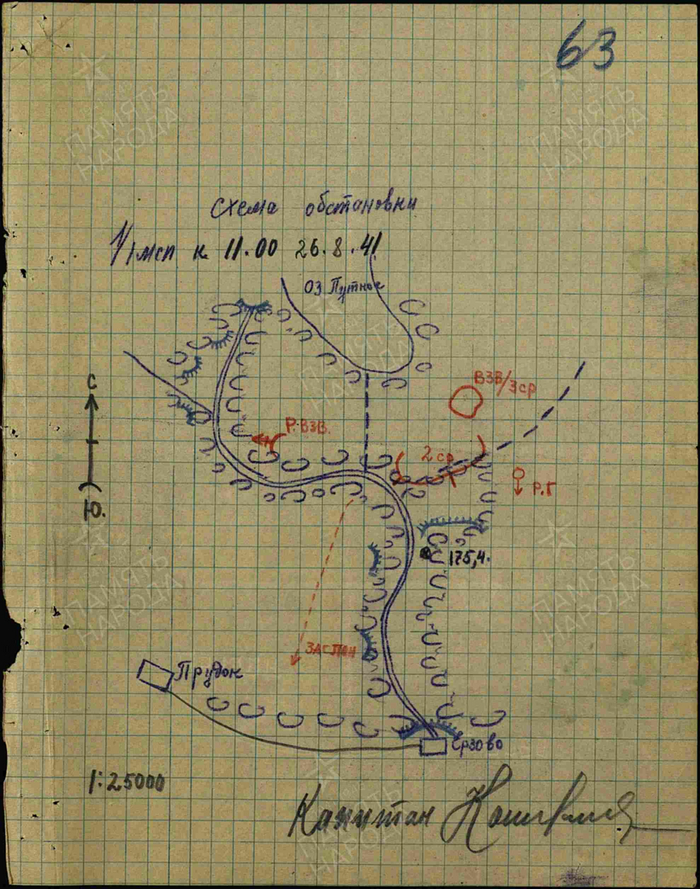 63
Схема обстановки
1/1 мсп к 11.00 26.8.41
оз. Путное
С
Ю.
ВЗВ/3ср
Р.ВЗВ.
2 ср
Р.Г
175,4.
Прудок
Ерзово
1:25000
Капитан
ПАМЯТЬ НАРОДА